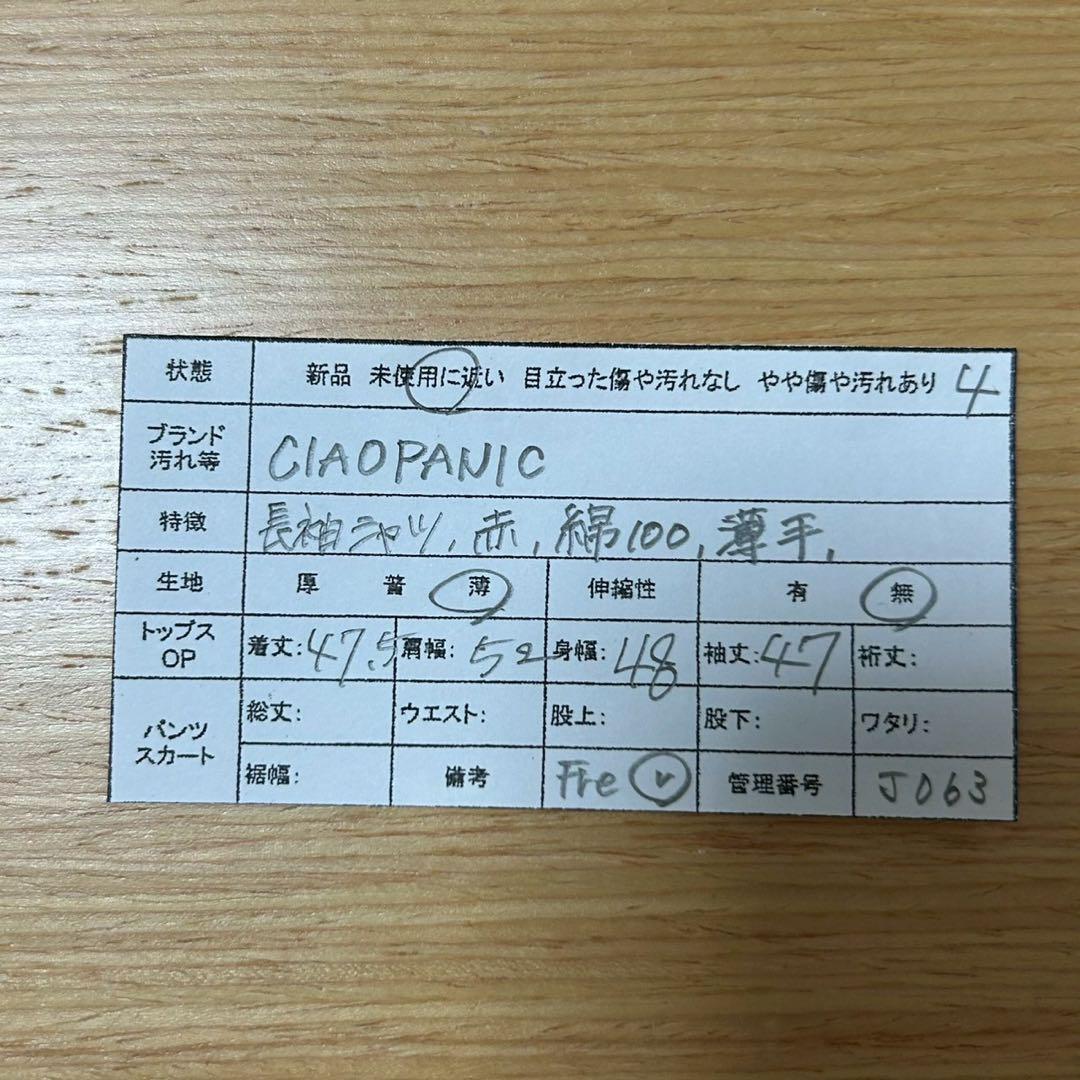 状態 新品 未使用に近い 目立った傷や汚れなし やや傷や汚れあり 4
ブランド
汚れ等 CIAOPANIC
特徴 長袖シャツ, 赤, 綿100, 薄手,
生地 厚 普 薄 伸縮性 有 無
トップス
OP 着丈:47.5 肩幅:52 身幅:48 袖丈:47 裄丈:
パンツ
スカート 総丈: ウエスト: 股上: 股下: ワタリ:
裾幅: 備考 Fre v 管理番号 J063